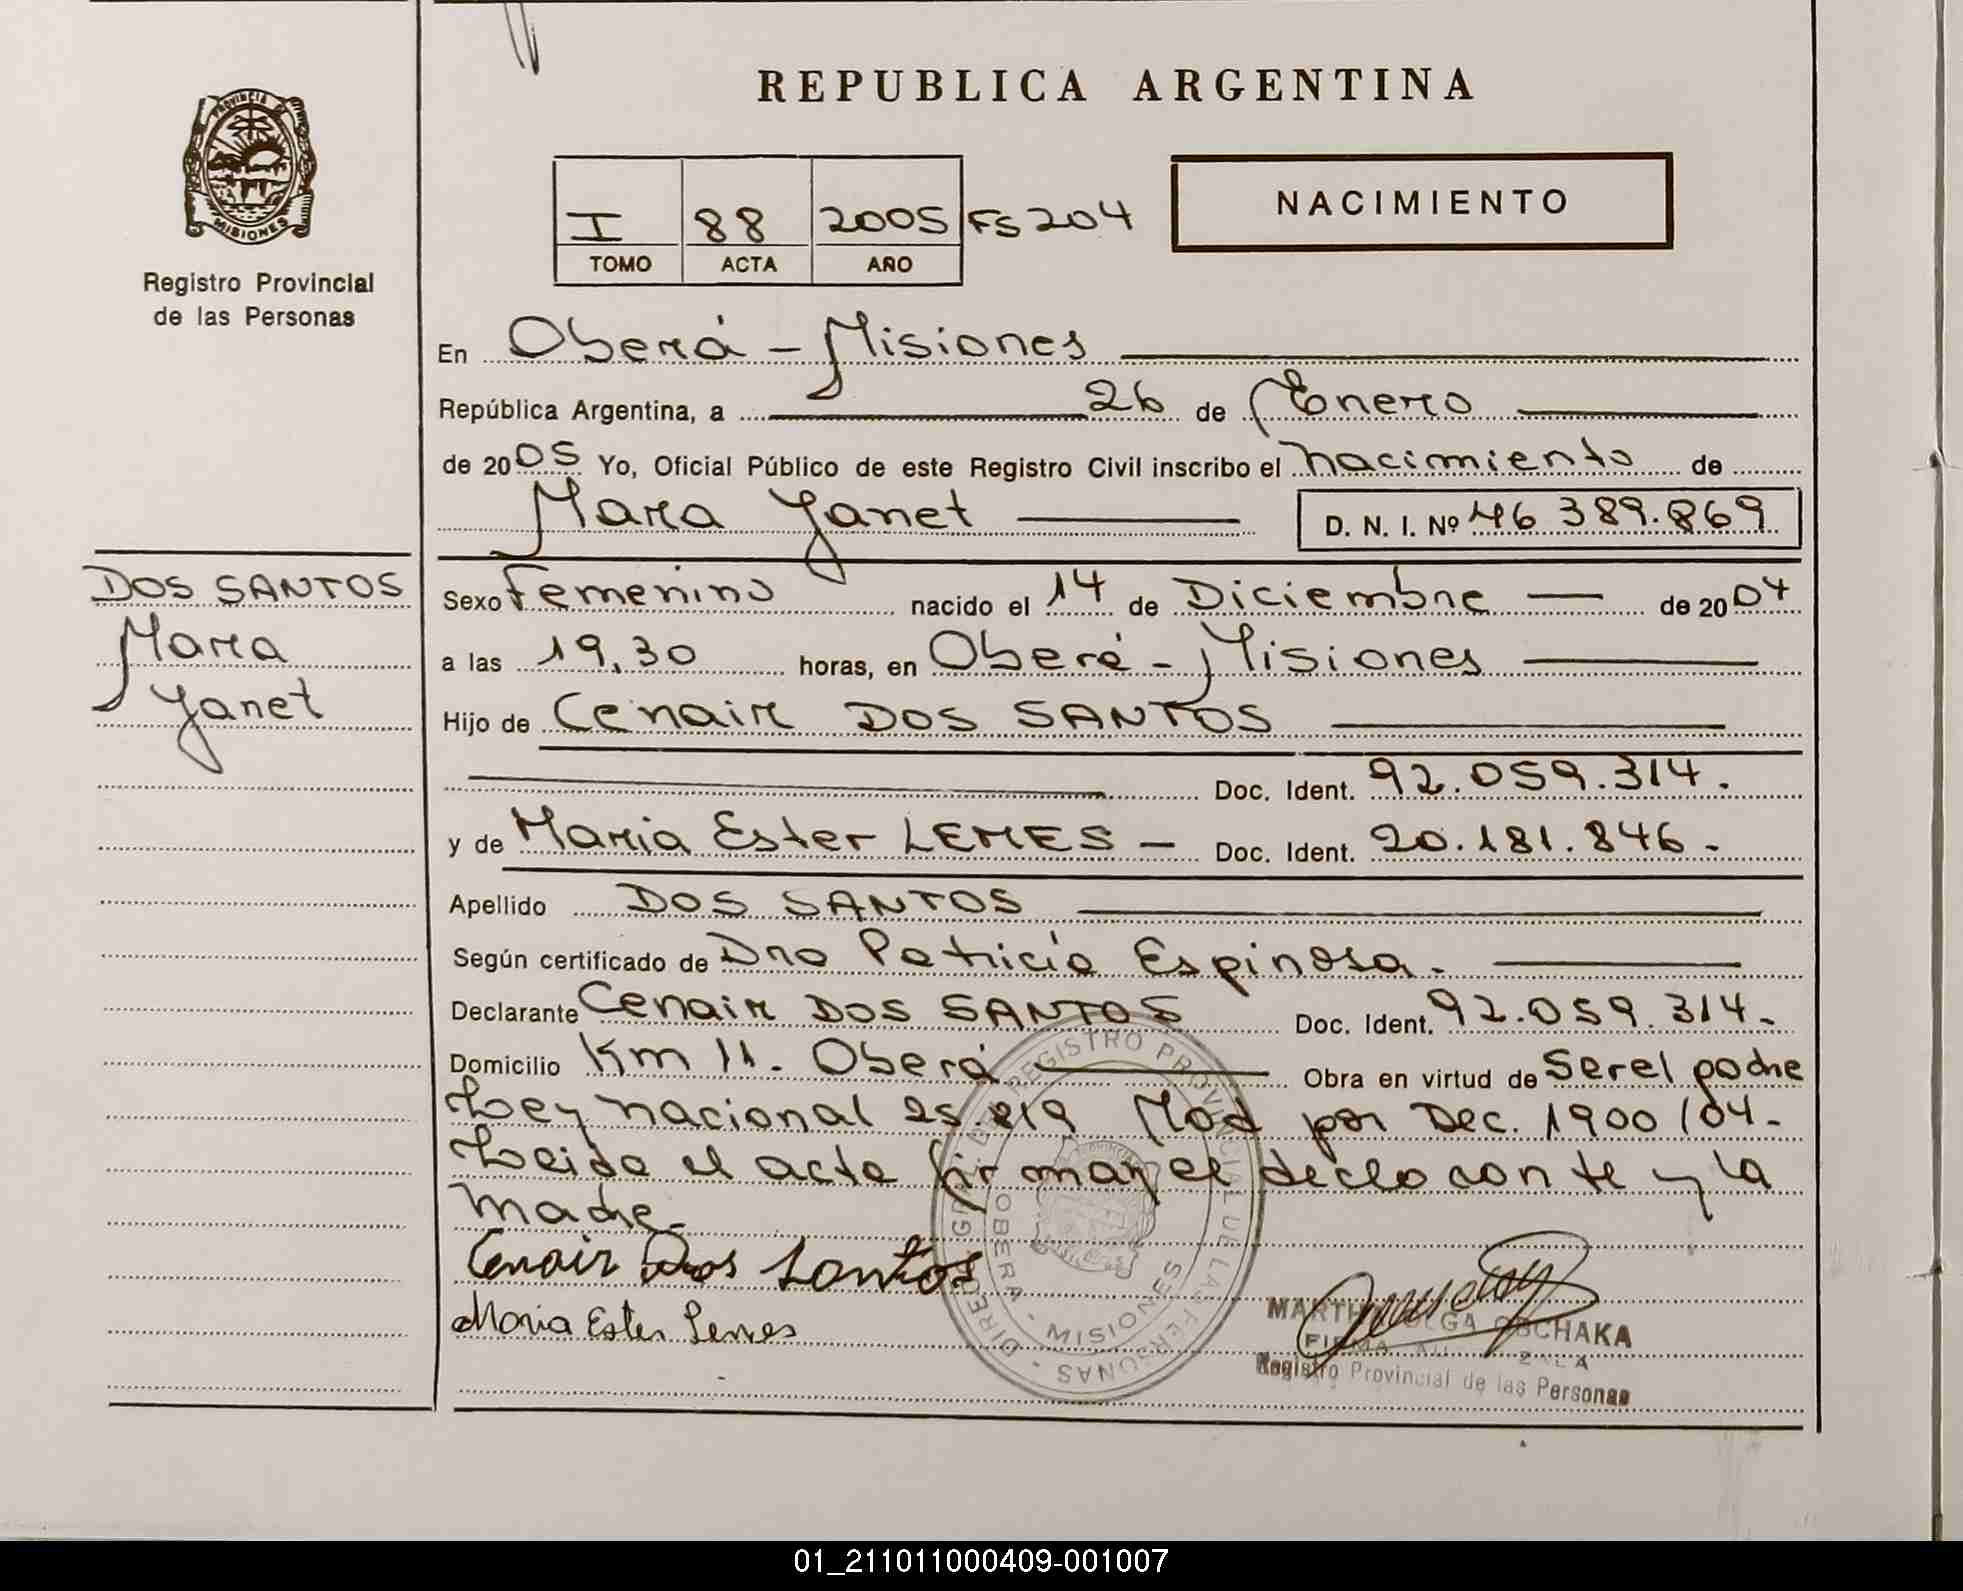 REPUBLICA ARGENTINA
PROVINCIA DE
MISIONES
Registro Provincial
de las Personas
I 88 2005 FS 204
TOMO ACTA AÑO
NACIMIENTO
En Oberá - Misiones
República Argentina, a 26 de Enero
de 2005 Yo, Oficial Público de este Registro Civil inscribo el nacimiento de
Mara Yanet D. N. I. Nº 46 389.869
DOS SANTOS
Mara
Yanet
Sexo Femenino nacido el 14 de Diciembre de 2004
a las 19,30 horas, en Oberá - Misiones
Hijo de Cenair DOS SANTOS
Doc. Ident. 92.059.314.
y de Maria Ester LEMES - Doc. Ident. 20.181.846.
Apellido DOS SANTOS
Según certificado de Dra Patricia Espinosa.
Declarante Cenair DOS SANTOS Doc. Ident. 92.059.314.
Domicilio Km 11. Oberá Obra en virtud de Ser el padre
Ley nacional 25.819 Mod por Dec. 1900/04.
Leida el acta firman el declarante y la
madre.
Cenair Dos Santos
Maria Ester Lemes
REGISTRO PROVINCIAL DE LAS PERSONAS
OBERA - MISIONES
MARTHA OLGA
Registro Provincial de las Personas
01_211011000409-001007